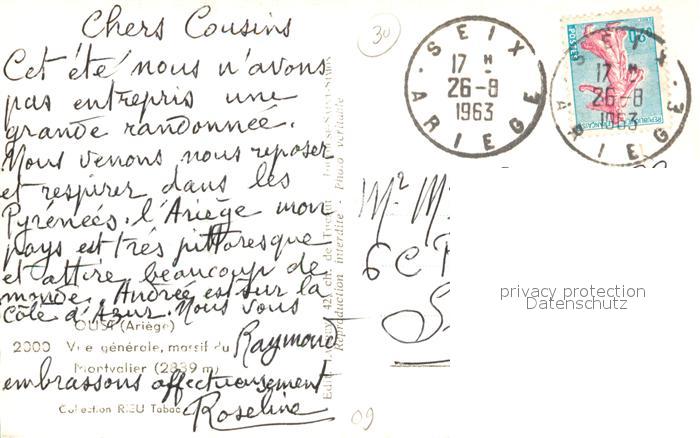 Chers Cousins
Cet été nous n'avons
pas entrepris une
grande randonnée.
Nous venons nous reposer
et respirer dans les
Pyrénées. l'Ariège mon
pays est très pittoresque
et attire beaucoup de
monde. Andrée est sur la
Côte d'Azur. Nous vous
OUST (Ariège)
2000 Vue générale, massif du
Raymond
Montvalier (2839 m)
embrassons affectueusement
Collection RIEU Tabac
Roseline
Reproduction interdite - Photo véritable
30
SEIX
17 H
26-8
1963
ARIEGE
POSTES
SEIX
17 H
26-8
1963
ARIEGE
Mr M
6 C
privacy protection
Datenschutz
09